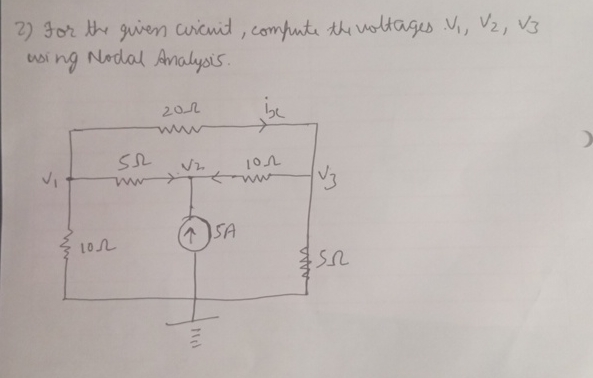 2) For the given circuit, compute the voltages V1, V2, V3
using Nodal Analysis.
20Ω ix
5Ω V2 10Ω
V1 V3
5A
10Ω 5Ω